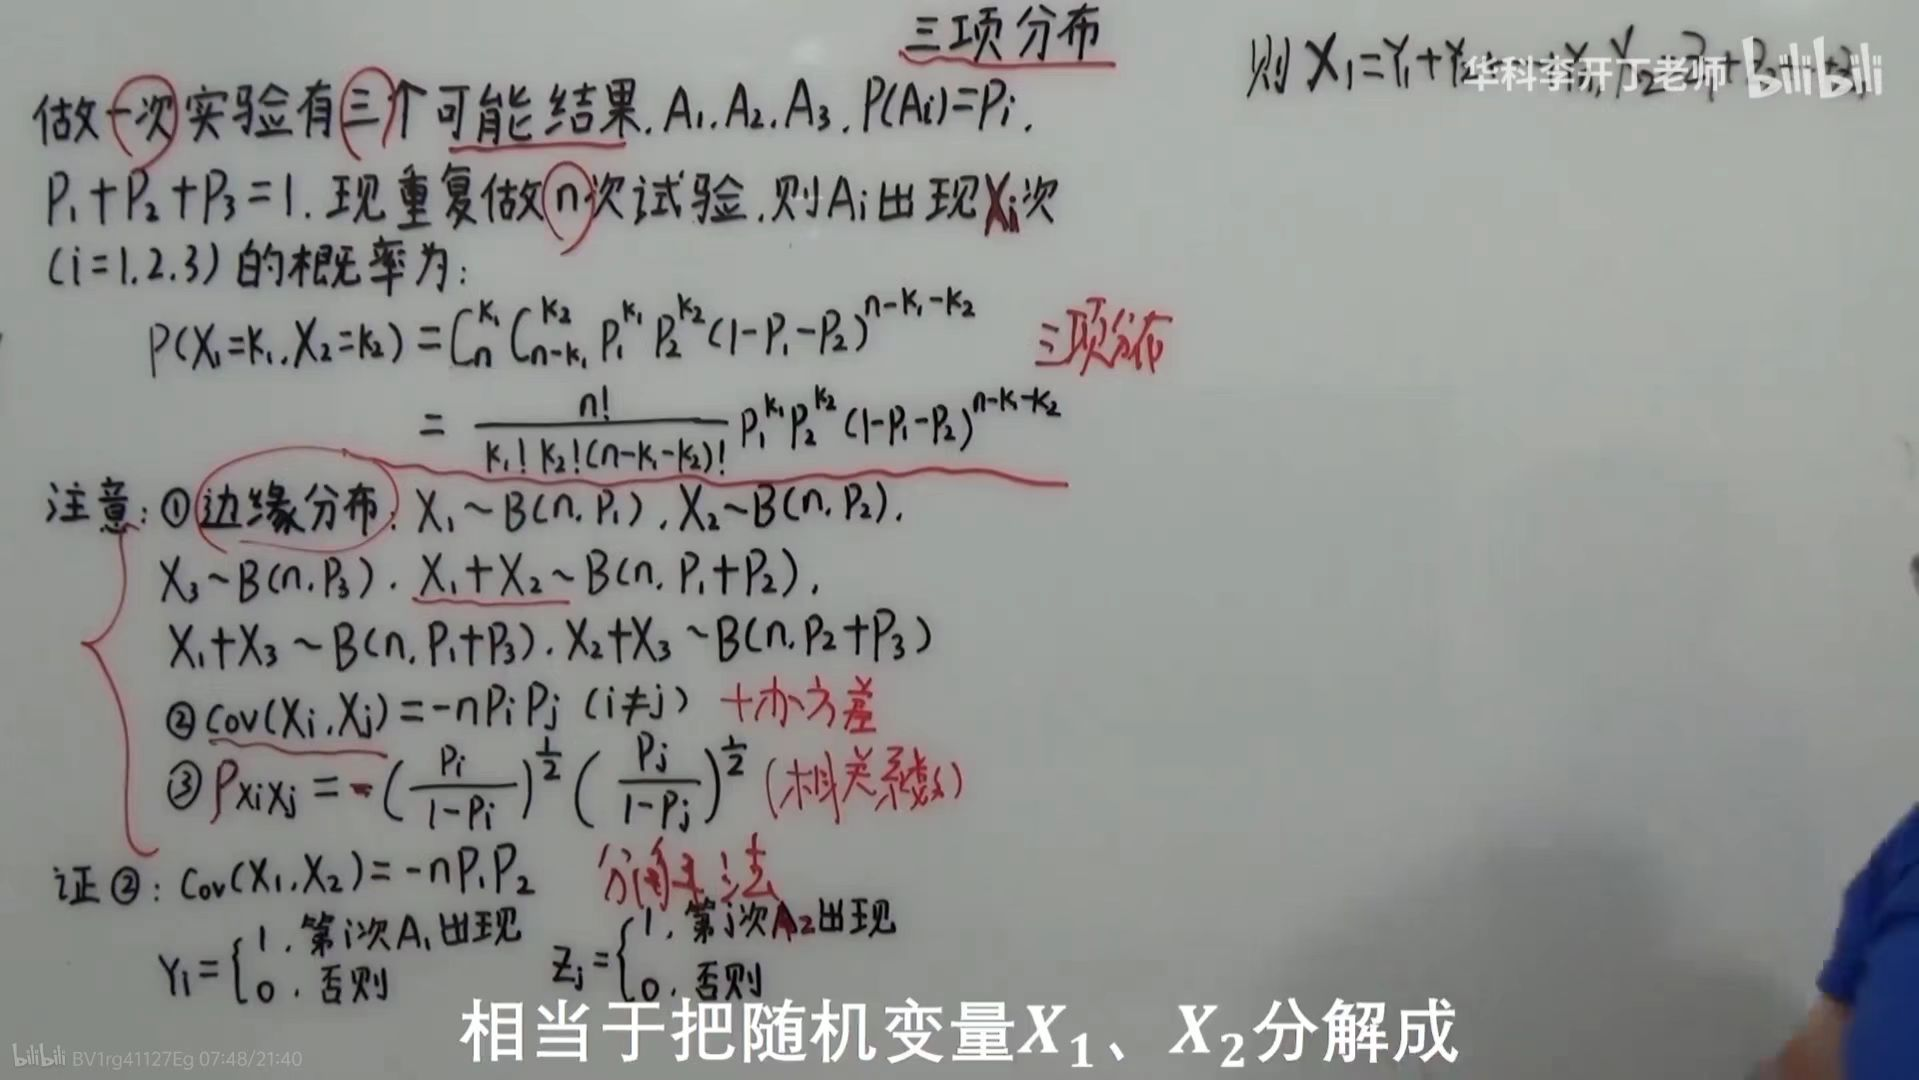 三项分布
做一次实验有三个可能结果. A₁. A₂. A₃. P(Aᵢ)=Pᵢ.
P₁+P₂+P₃=1. 现重复做n次试验. 则Aᵢ出现Xᵢ次
(i=1.2.3)的概率为:
P(X₁=k₁. X₂=k₂) = Cₙ^k₁ C_{n-k₁}^k₂ P₁^k₁ P₂^k₂ (1-P₁-P₂)^{n-k₁-k₂} 三项分布
= n!/(k₁! k₂!(n-k₁-k₂)!) P₁^k₁ P₂^k₂ (1-P₁-P₂)^{n-k₁-k₂}
注意: ①边缘分布: X₁~B(n. P₁). X₂~B(n. P₂).
X₃~B(n. P₃). X₁+X₂~B(n. P₁+P₂).
X₁+X₃~B(n. P₁+P₃). X₂+X₃~B(n. P₂+P₃)
②Cov(Xᵢ. Xⱼ)=-nPᵢPⱼ (i≠j) 协方差
③ρXᵢXⱼ = -(Pᵢ/(1-Pᵢ))^{1/2} (Pⱼ/(1-Pⱼ))^{1/2} (相关系数)
证②: Cov(X₁. X₂)=-nP₁P₂ 分解法
Yᵢ={1. 第i次A₁出现
0. 否则
Zⱼ={1. 第j次A₂出现
0. 否则
则 X₁=Y₁+Y₂
华科李开丁老师 bilibili
相当于把随机变量X₁、X₂分解成
bilibili BV1rg41127Eg 07:48/21:40